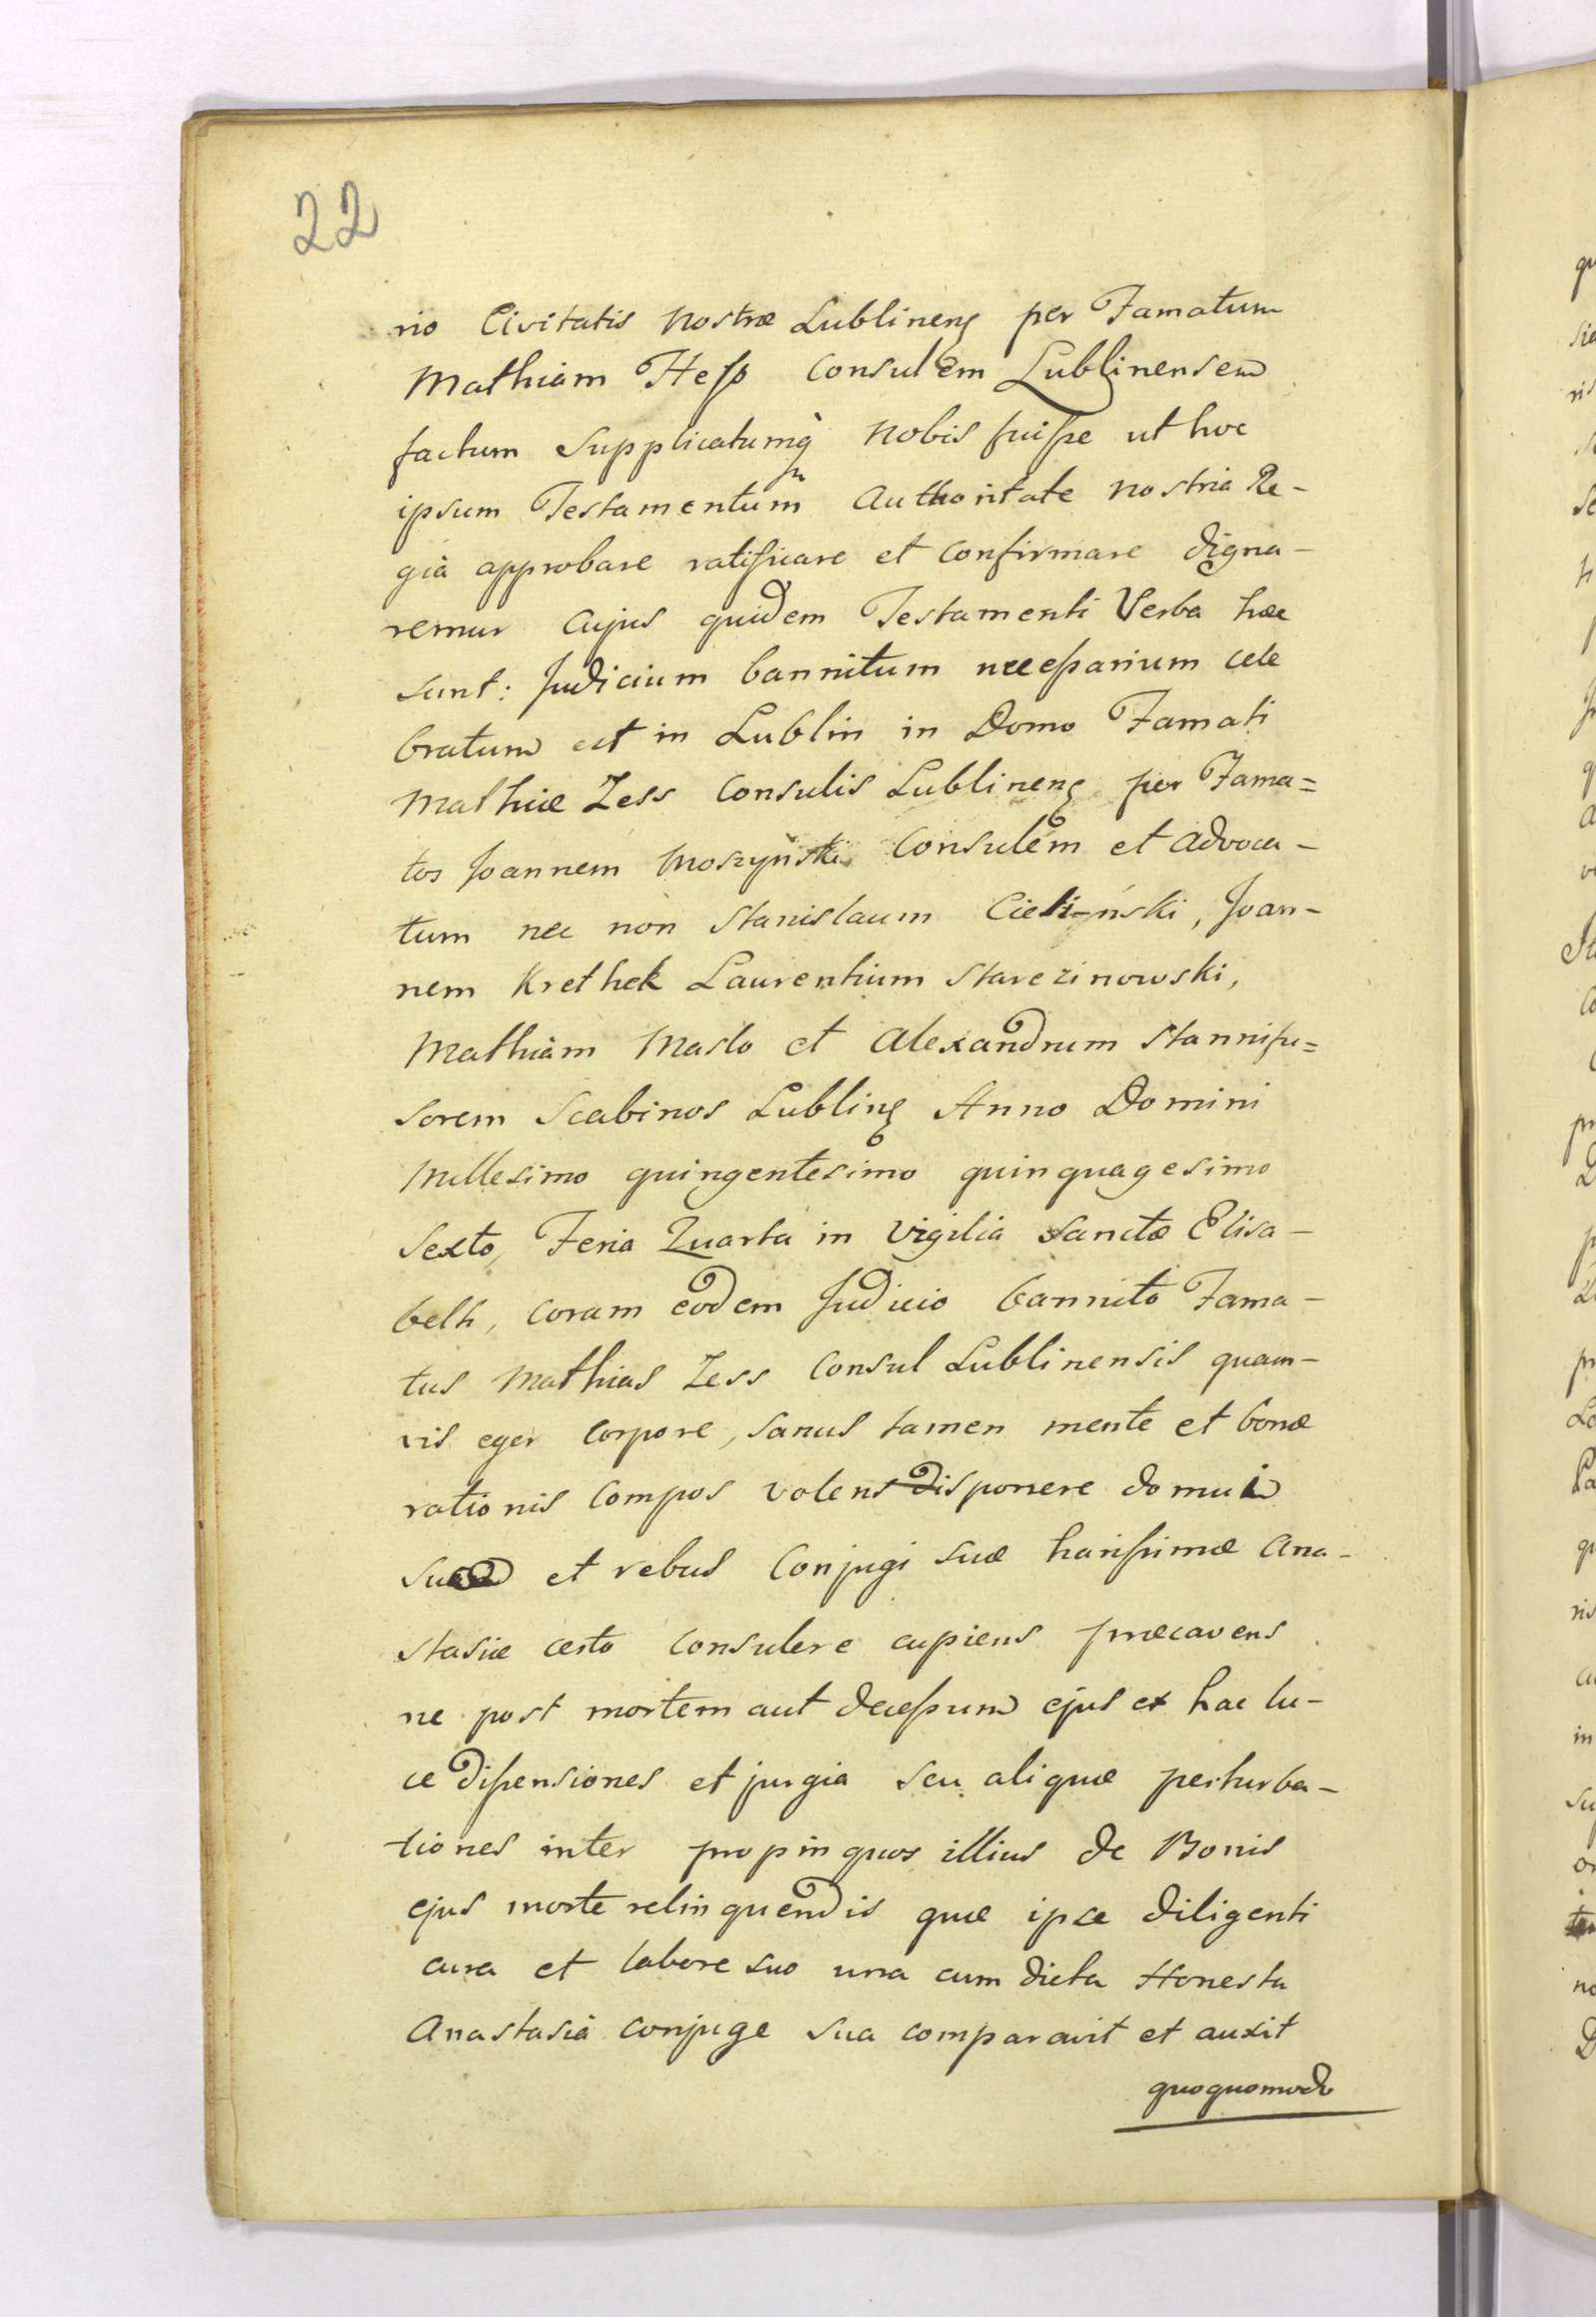 22
rio Civitatis Nostræ Lublineng per Famatum
Mathiam Hess Consulem Lublinensem
factum Supplicatumq nobis fuisse ut hoc
ipsum Testamentum Authoritate nostria Re-
già approbare ratificare et confirmare digna-
remur cujus quidem Testamenti Verba hæc
sunt: Judicium bannitum necessarium cele
bratum est in Lublin in Domo Famati
Mathiæ Zess Consulis Lublineng per Fama=
tos Joannem Moszyński Consulem et Advoca-
tum nec non Stanislaum Cieli-ński, Joan-
nem Krethek Laurentium Starezinowski,
Mathiàm Maslo et Alexandrum Stannifu=
sorem Scabinos Lubling Anno Domini
Millesimo quingentesimo quinquagesimo
Sexto, Feria Quarta in Vigilia Sanctæ Elisa-
beth, coram eodem Judicio bannito Fama-
tus Mathias Zess Consul Lublinensis quam-
vis eger corpore, sanus tamen mente et bonæ
rationis compos volens disponere domui
et rebus Conjugi suæ harissimæ Ana-
stasiæ certo consulere cupiens præcavens
ne post mortem aut decessum ejus ex hac lu-
ce dissensiones et jurgia seu aliquæ perturba-
tiones inter propinquos illius de Bonis
ejus morte relinquendis quæ ipse diligenti
cura et labore suo una cum dicta Honesta
Anastasià conjuge sua comparavit et auxit
quoquomodo